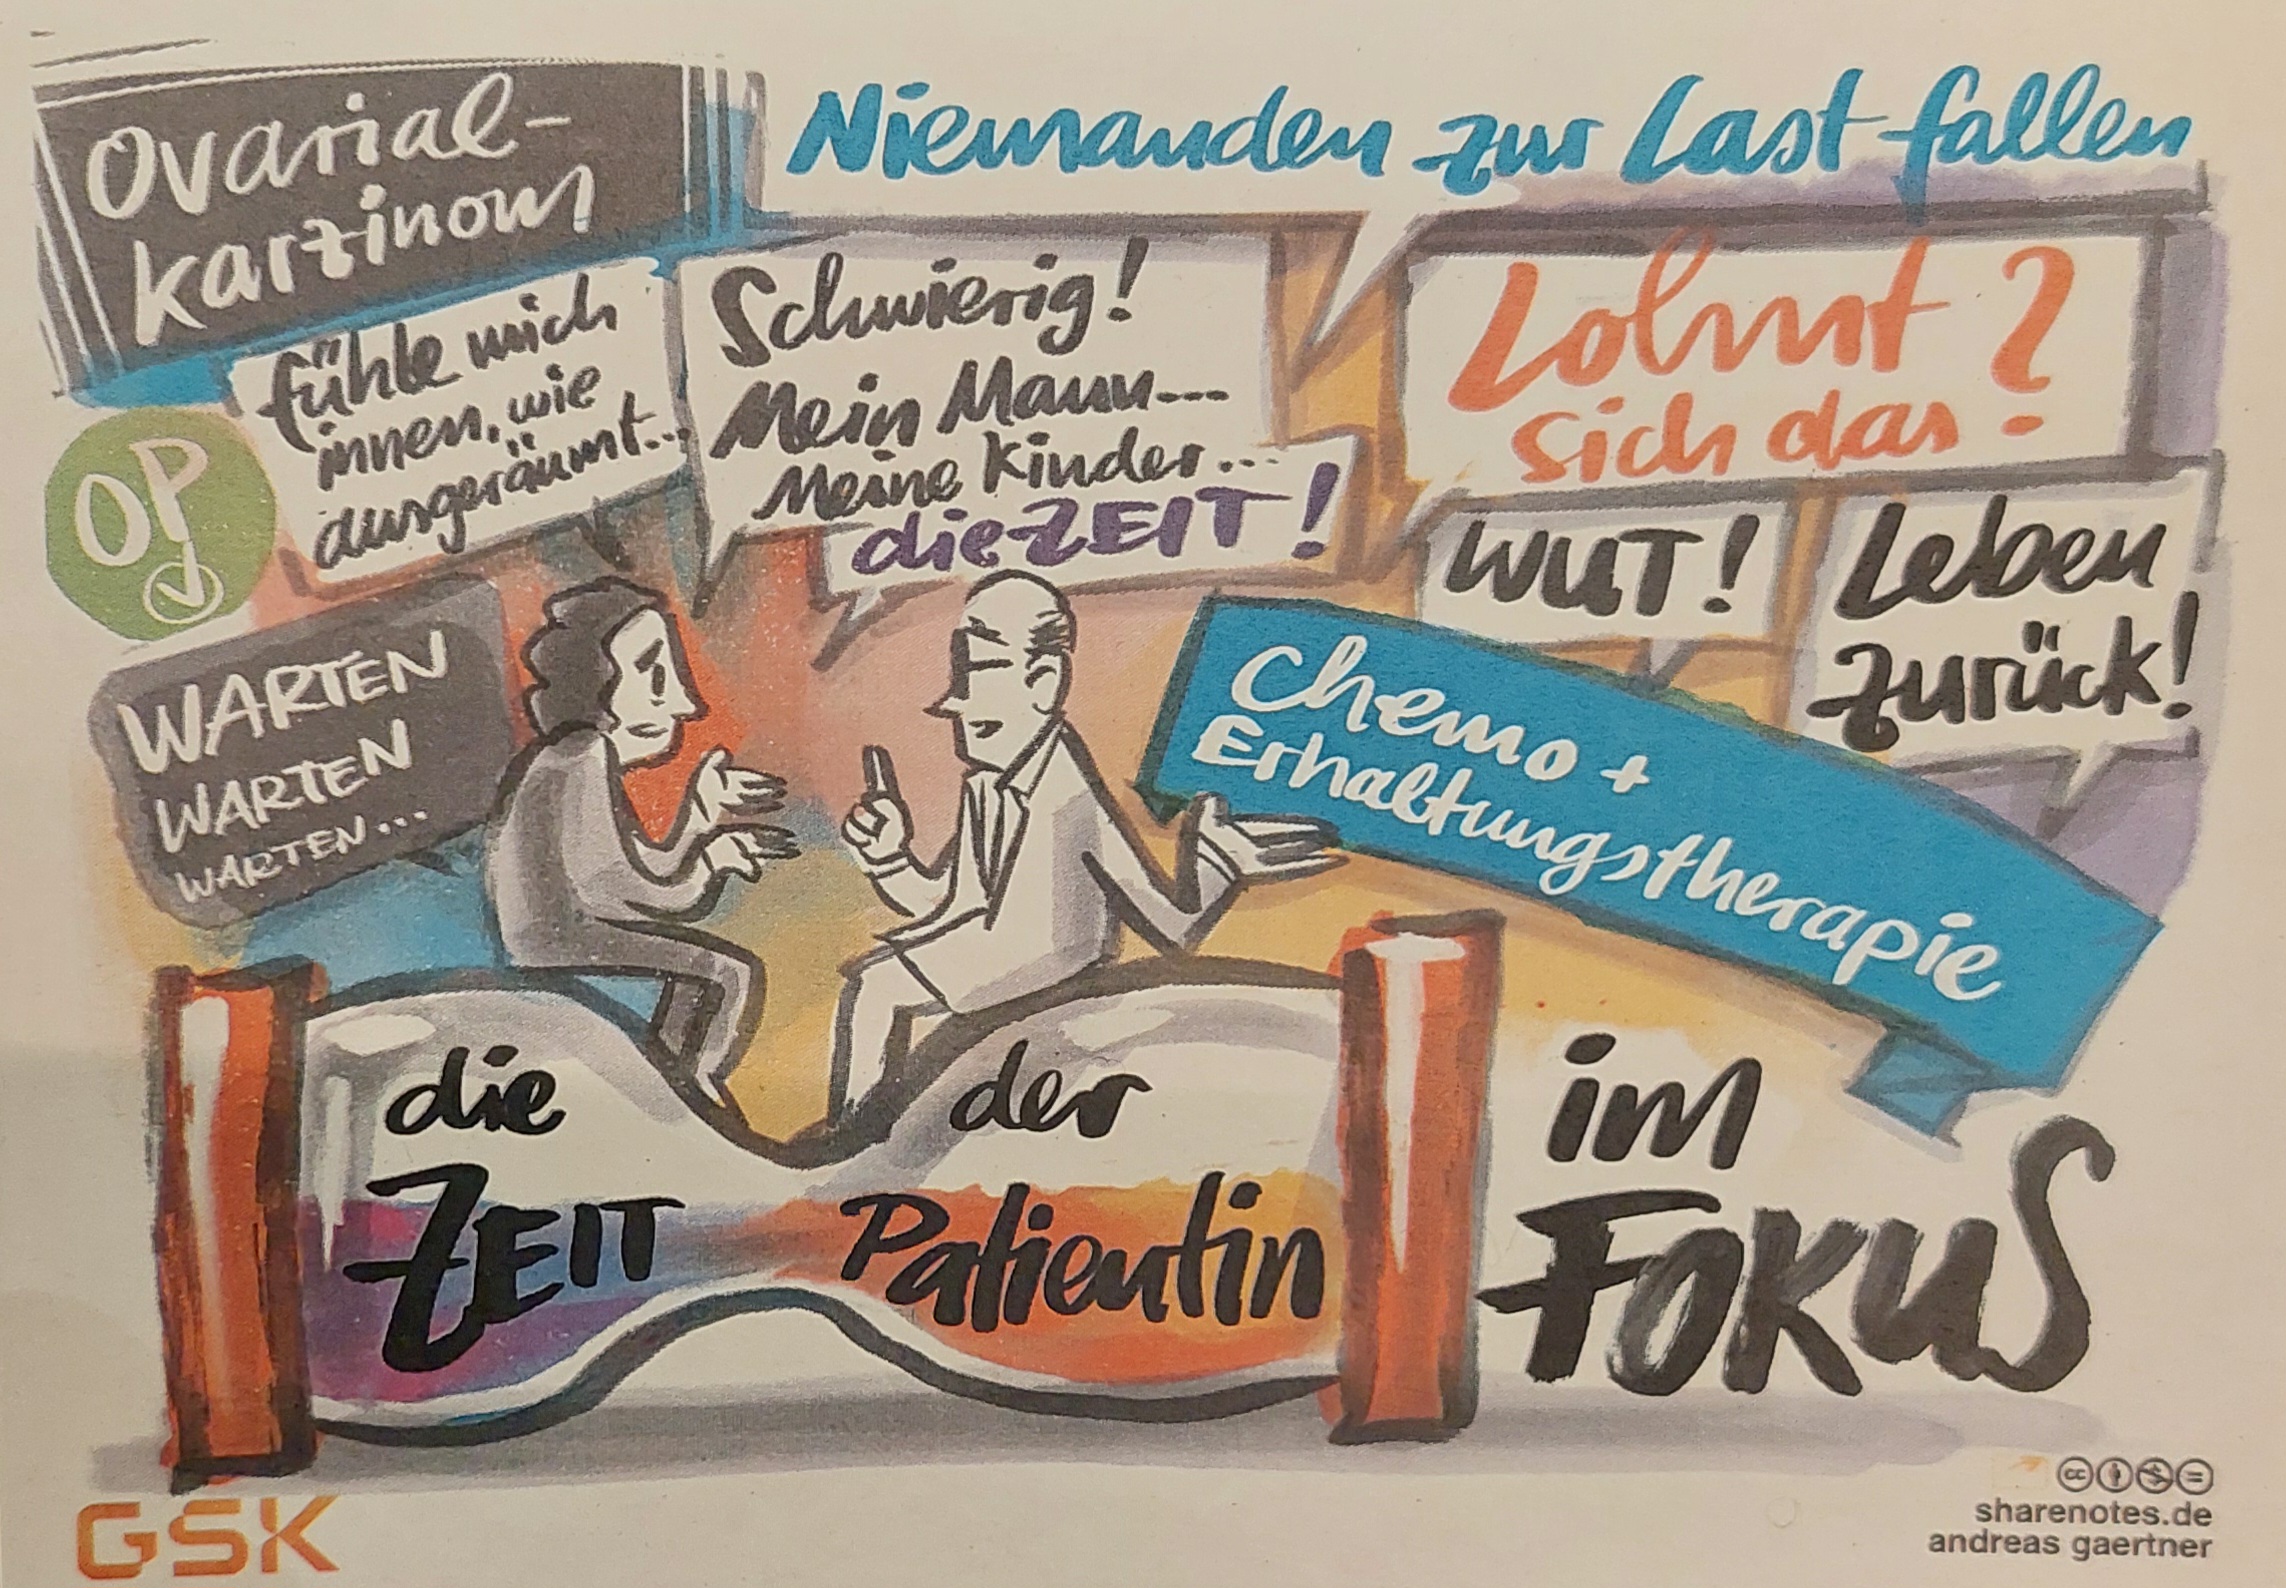 Ovarial-
karzinom
Niemanden zur Last fallen
fühle mich
innen, wie
ausgeräumt...
Schwierig!
Mein Mann...
Meine Kinder...
die ZEIT!
Lohnt
sich das?
WUT!
Leben
zurück!
OP
WARTEN
WARTEN
WARTEN...
Chemo +
Erhaltungstherapie
die
ZEIT
der
Patientin
im
FOKUS
GSK
cc
sharenotes.de
andreas gaertner